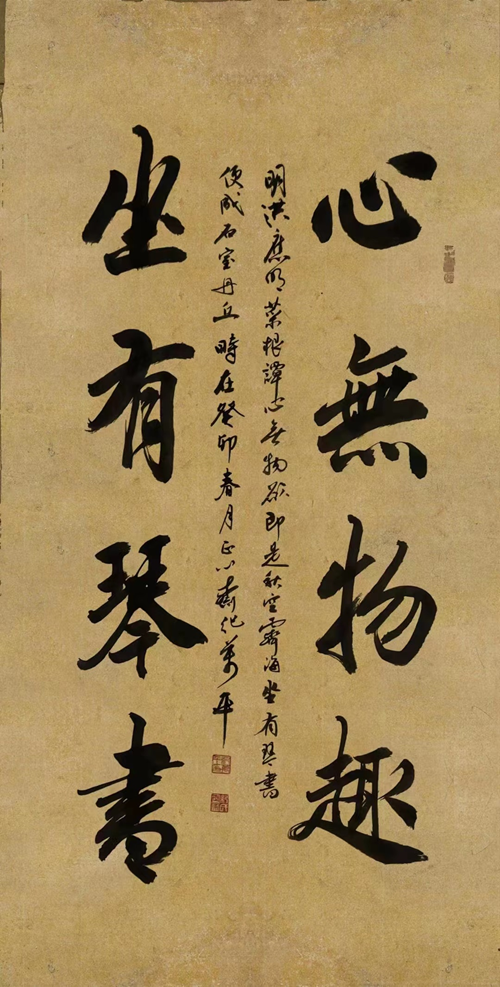 心無物趣
坐有琴書
明洪應明菜根譚心無物欲即是秋空霽海坐有琴書
便成石室丹丘時在癸卯春月正心齋萬平